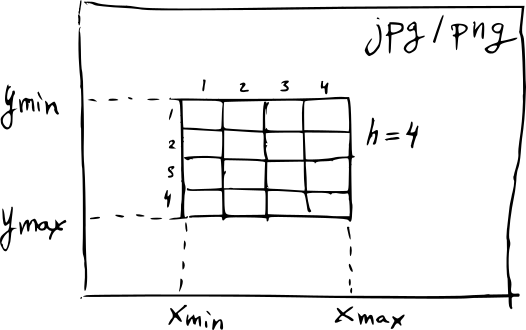 jpg/png
1 2 3 4
ymin
1
h=4
2
3
4
ymax
xmin xmax